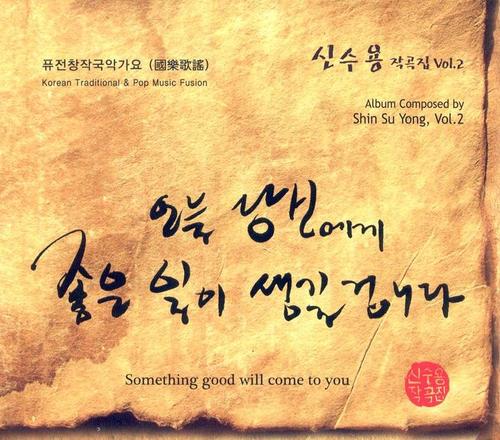 퓨전창작국악가요 (國樂歌謠)
Korean Traditional & Pop Music Fusion
신수용 작곡집 Vol.2
Album Composed by
Shin Su Yong, Vol.2
오늘 당신에게
좋은 일이 생길겁니다
Something good will come to you
신수용
작곡집